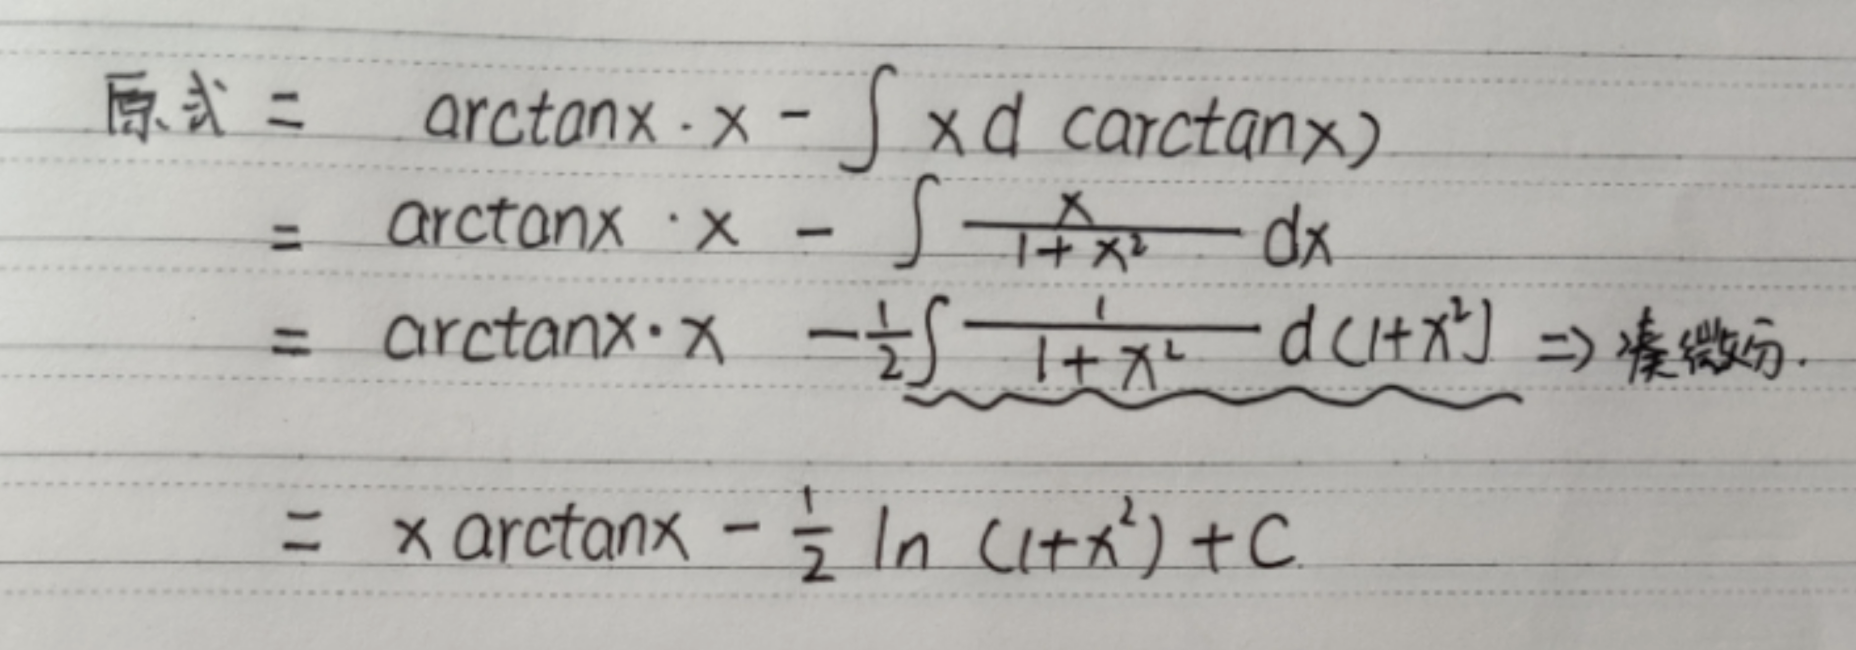 原式 = arctanx · x - ∫ x d (arctanx)
= arctanx · x - ∫ x/(1+x²) dx
= arctanx · x - 1/2 ∫ 1/(1+x²) d(1+x²) ⇒ 凑微分.
= x arctanx - 1/2 ln (1+x²) + C.